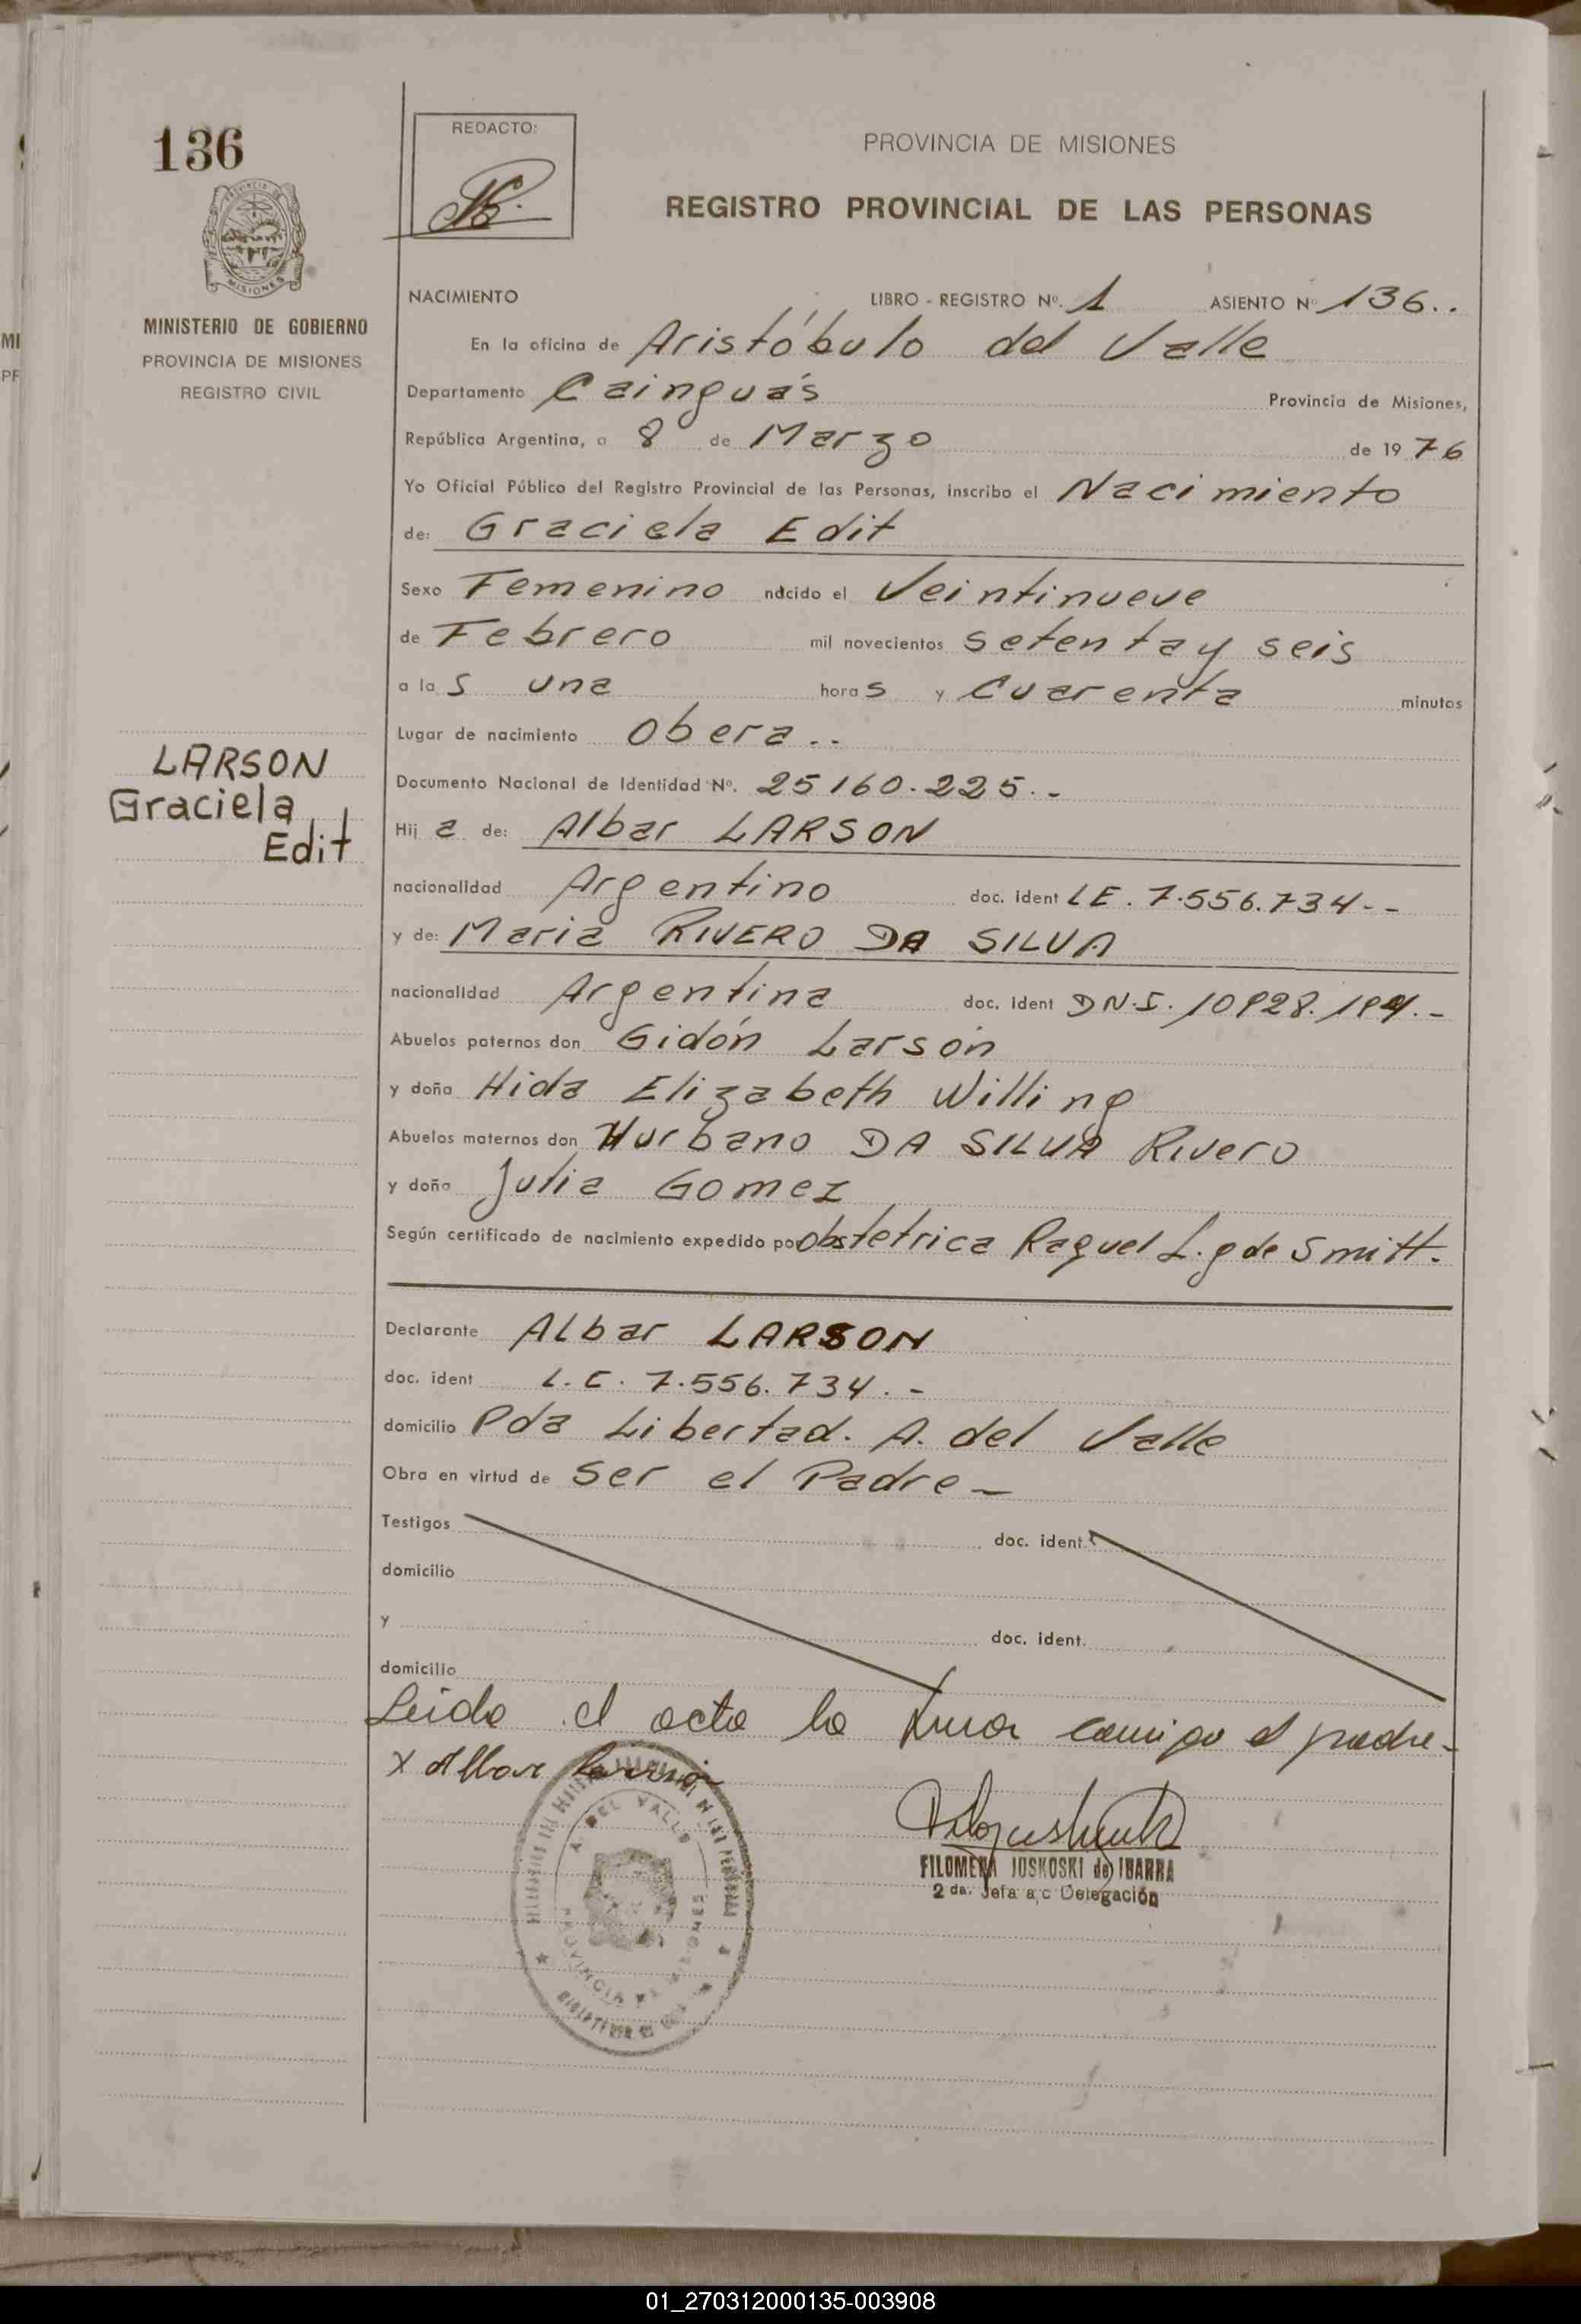 136
REDACTO:
PROVINCIA DE MISIONES
REGISTRO PROVINCIAL DE LAS PERSONAS
MISIONES
MINISTERIO DE GOBIERNO
PROVINCIA DE MISIONES
REGISTRO CIVIL
NACIMIENTO LIBRO - REGISTRO Nº. 1 ASIENTO Nº 136..
En la oficina de Aristóbulo del Valle
Departamento Cainguás Provincia de Misiones,
República Argentina, a 8 de Marzo de 19 76
Yo Oficial Público del Registro Provincial de las Personas, inscribo el Nacimiento
de: Graciela Edit
Sexo Femenino nacido el Veintinueve
de Febrero mil novecientos setenta y seis
a las una horas y Cuarenta minutos
Lugar de nacimiento Obera..
LARSON
Graciela
Edit
Documento Nacional de Identidad Nº. 25160.225.-
Hija de: Albar LARSON
nacionalidad Argentino doc. ident LE. 7.556.734--
y de: Maria RIVERO DA SILVA
nacionalidad Argentina doc. ident DN.I.
Abuelos paternos don Gidón Larson
y doña Hida Elizabeth Willing
Abuelos maternos don Hurbano DA SILVA Rivero
y doña Julia Gomez
Según certificado de nacimiento expedido por obstetrica Raquel L. g de Smitt.
Declarante Albar LARSON
doc. ident L.E. 7.556.734.-
domicilio Pda Libertad. A. del Valle
Obra en virtud de ser el Padre-
Testigos doc. ident.
domicilio
y doc. ident.
domicilio
Leida el acta la firma conmigo el padre-
x Albar Larson
A. DEL VALLE
PROVINCIA
FILOMENA JUSKOSKI de IBARRA
2 da. Jefa a/c Delegación
01_270312000135-003908